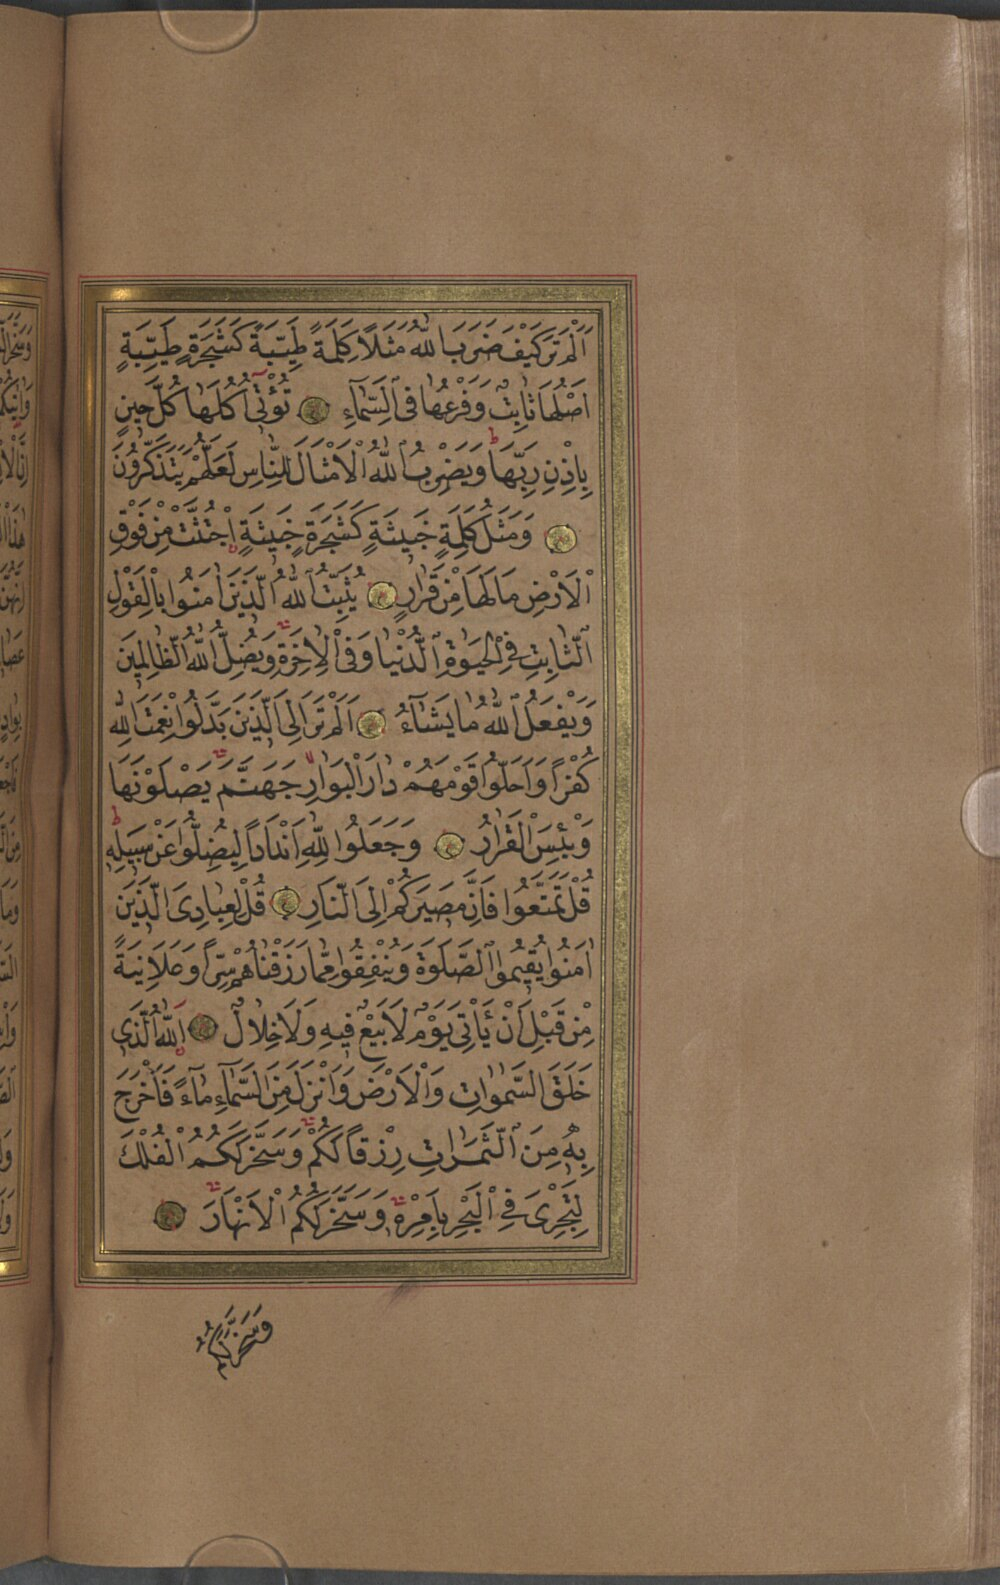 اَلَمْ تَرَ كَيْفَ ضَرَبَ اللّٰهُ مَثَلًا كَلِمَةً طَيِّبَةً كَشَجَرَةٍ طَيِّبَةٍ
اَصْلُهَا ثَابِتٌ وَفَرْعُهَا فِى السَّمَآءِ تُؤْتٖٓى اُكُلَهَا كُلَّ حٖينٍ
بِاِذْنِ رَبِّهَا ط وَيَضْرِبُ اللّٰهُ الْاَمْثَالَ لِلنَّاسِ لَعَلَّهُمْ يَتَذَكَّرُونَ
وَمَثَلُ كَلِمَةٍ خَبٖيثَةٍ كَشَجَرَةٍ خَبٖيثَةٍ اِجْتُثَّتْ مِنْ فَوْقِ
الْاَرْضِ مَا لَهَا مِنْ قَرَارٍ يُثَبِّتُ اللّٰهُ الَّذٖينَ اٰمَنُوا بِالْقَوْلِ
الثَّابِتِ فِى الْحَيٰوةِ الدُّنْيَا وَفِى الْاٰخِرَةِ وَيُضِلُّ اللّٰهُ الظَّالِمٖينَ
وَيَفْعَلُ اللّٰهُ مَا يَشَآءُ اَلَمْ تَرَ اِلَى الَّذٖينَ بَدَّلُوا نِعْمَتَ اللّٰهِ
كُفْرًا وَاَحَلُّوا قَوْمَهُمْ دَارَ الْبَوَارِ جَهَنَّمَ يَصْلَوْنَهَا
وَبِئْسَ الْقَرَارُ وَجَعَلُوا لِلّٰهِ اَنْدَادًا لِيُضِلُّوا عَنْ سَبٖيلِهٖ ط
قُلْ تَمَتَّعُوا فَاِنَّ مَصٖيرَكُمْ اِلَى النَّارِ قُلْ لِعِبَادِىَ الَّذٖينَ
اٰمَنُوا يُقٖيمُوا الصَّلٰوةَ وَيُنْفِقُوا مِمَّا رَزَقْنَاهُمْ سِرًّا وَعَلَانِيَةً
مِنْ قَبْلِ اَنْ يَاْتِىَ يَوْمٌ لَا بَيْعٌ فٖيهِ وَلَا خِلَالٌ اَللّٰهُ الَّذٖى
خَلَقَ السَّمٰوَاتِ وَالْاَرْضَ وَاَنْزَلَ مِنَ السَّمَآءِ مَآءً فَاَخْرَجَ
بِهٖ مِنَ الثَّمَرَاتِ رِزْقًا لَكُمْ وَسَخَّرَ لَكُمُ الْفُلْكَ
لِتَجْرِىَ فِى الْبَحْرِ بِاَمْرِهٖ وَسَخَّرَ لَكُمُ الْاَنْهَارَ
وَسَخَّرَ لَكُمُ